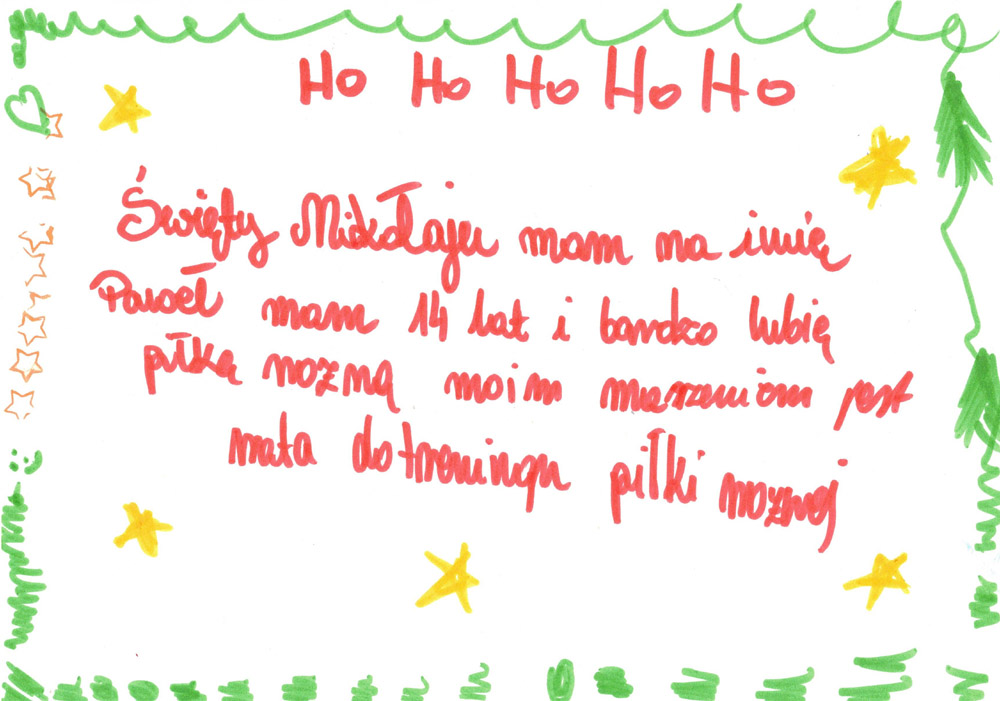 Ho Ho Ho Ho Ho
Święty Mikołaju mam na imię
Paweł mam 14 lat i bardzo lubię
piłkę nozną moim marzeniem jest
mata do treningu piłki noznej